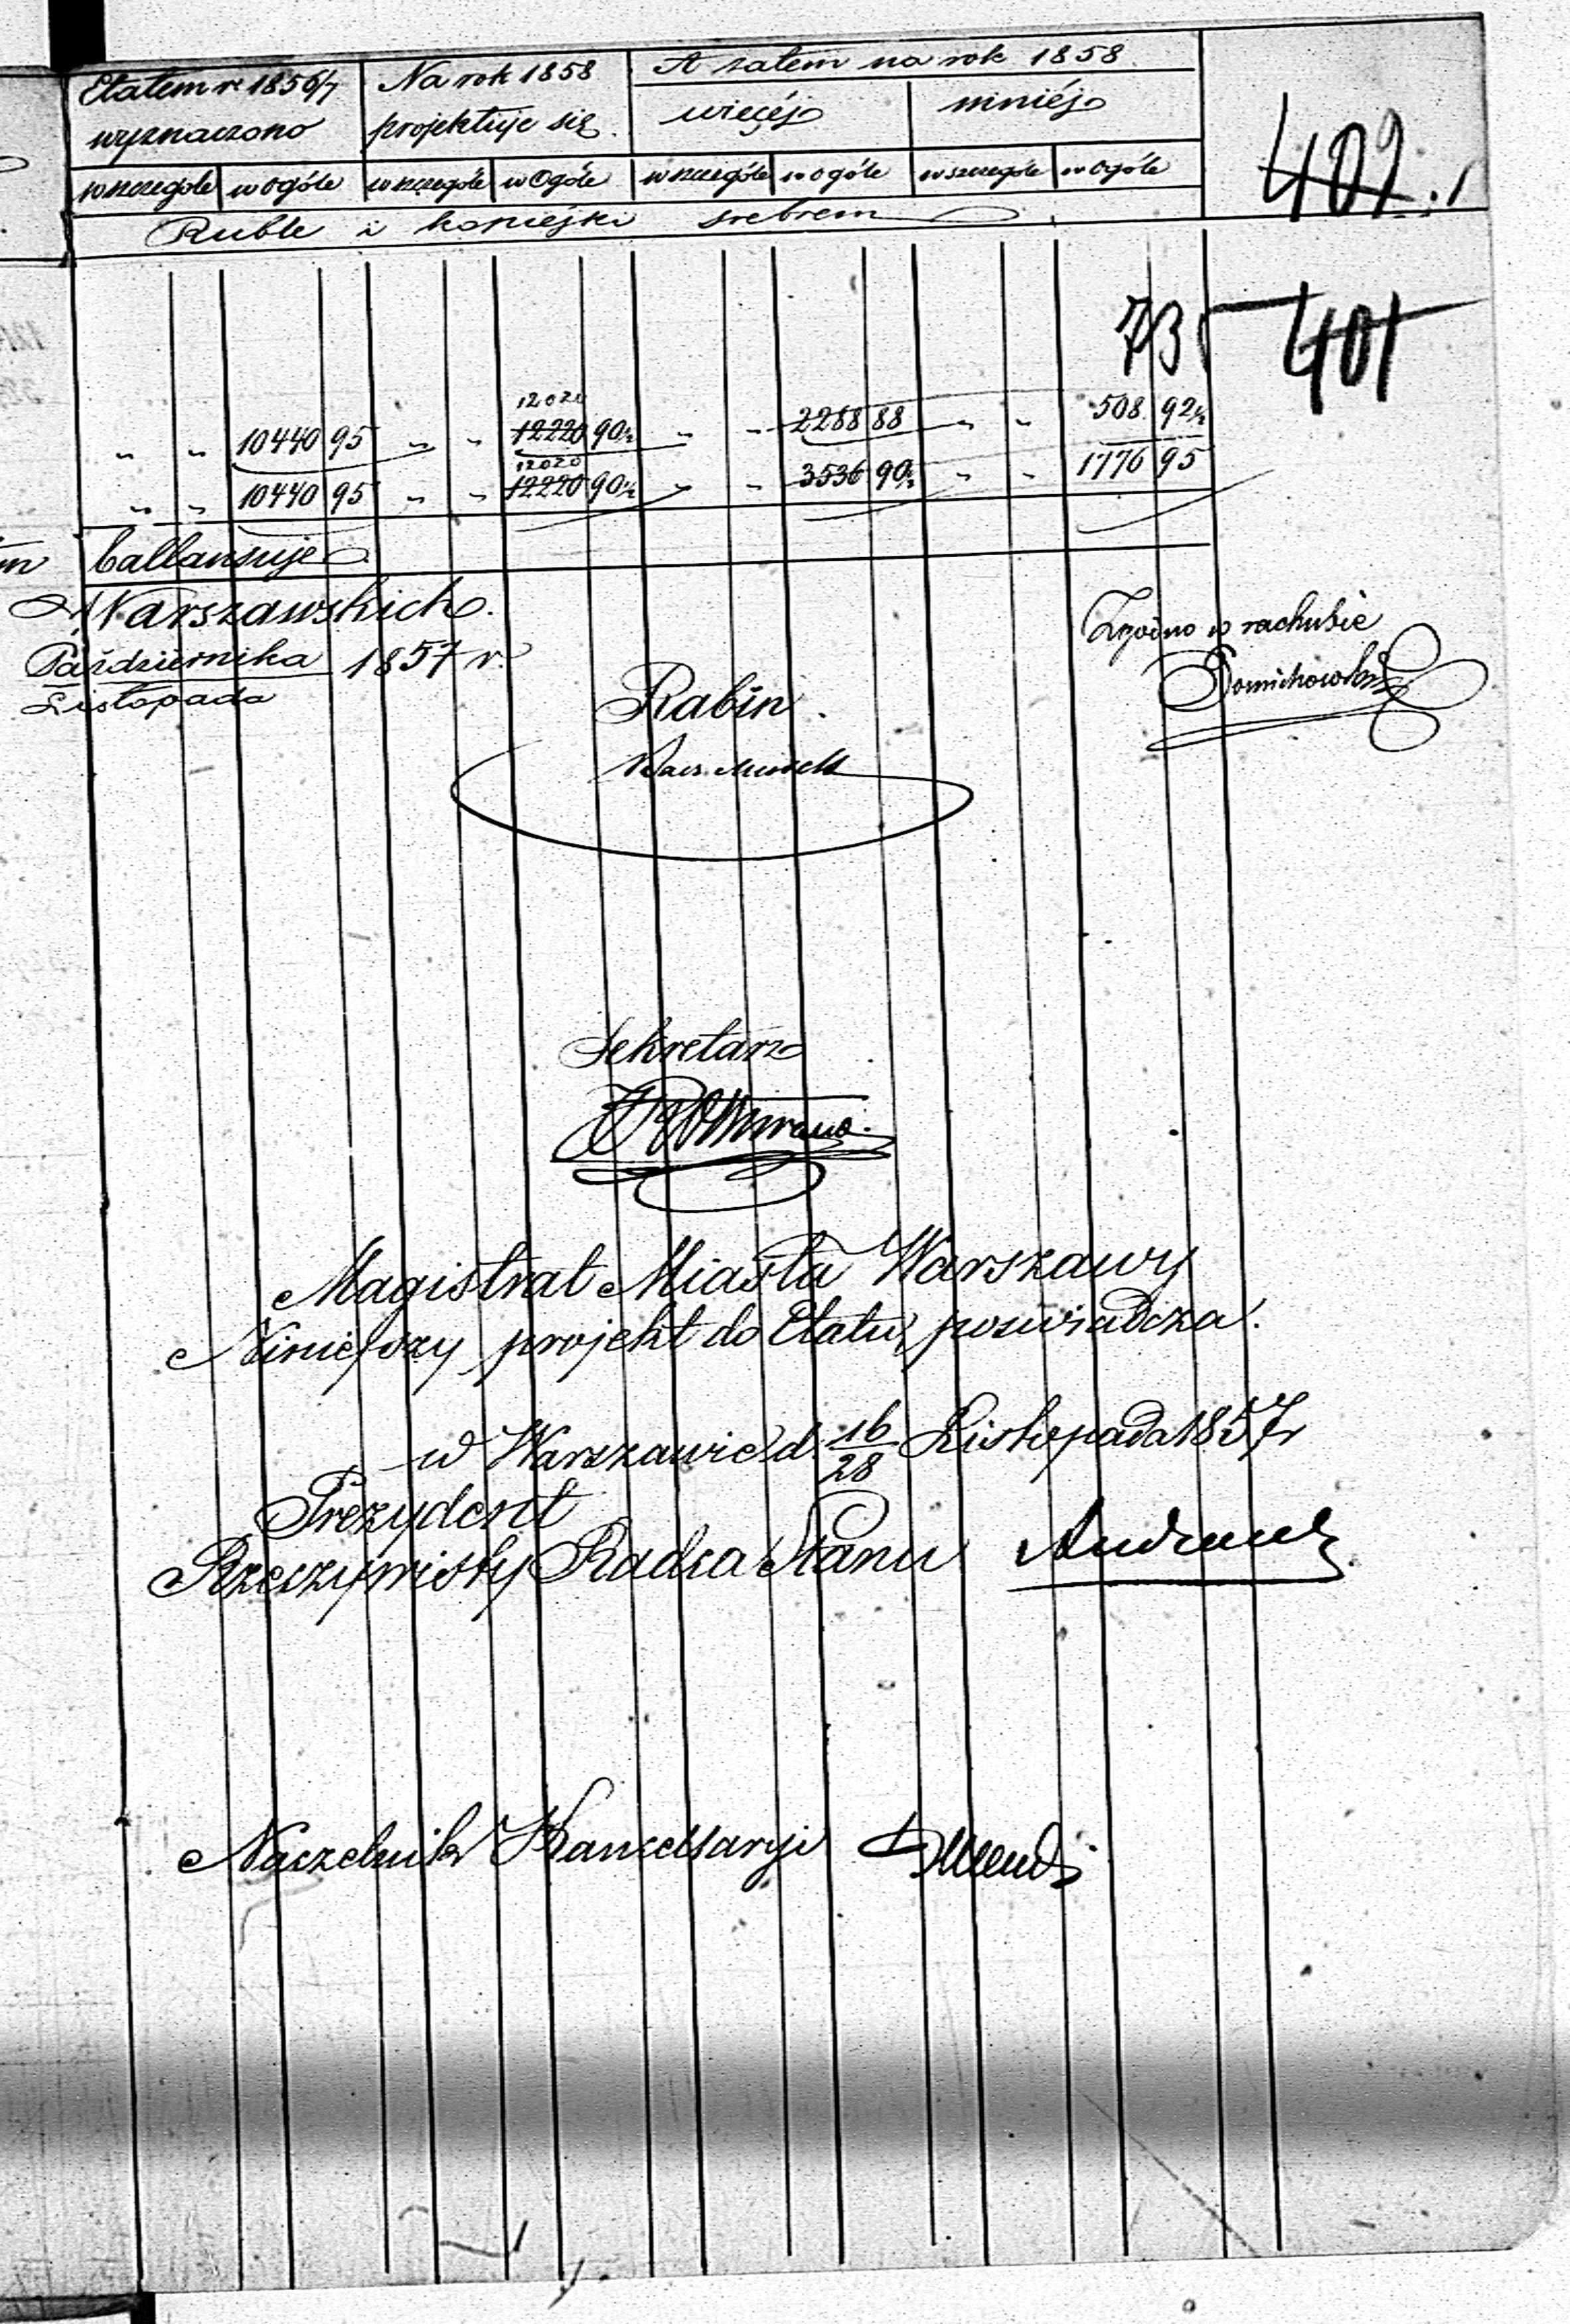 Etatem r. 1856/7 wyznaczono
Na rok 1858 projektuje się
A zatem na rok 1858
więcéj
mniéj
w szczególe w ogóle w szczególe w Ogóle w szczególe w ogóle w szczególe w ogóle
Ruble i kopiejki srebrem
402
401
735
12020
" " 10440 95 " " 12220 90½ " " 2288 88 " " 508 92½
12020
" " 10440 95 " " 12220 90½ " " 3536 90½ " " 1776 95
ballansuje
Warszawskich.
Października 1857 r.
Listopada
Zgodno w rachubie
Rabin
Sekretarz
Magistrat Miasta Warszawy
Niniejszy projekt do Etatu, poświadcza.
w Warszawie d. 16/28 Listopada 1857 r
Prezydent
Rzeczywisty Radca Stanu Andrault
Naczelnik Kancellaryi